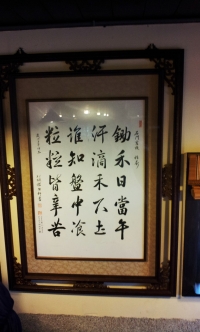 鋤禾日當午
汗滴禾下土
誰知盤中飡
粒粒皆辛苦